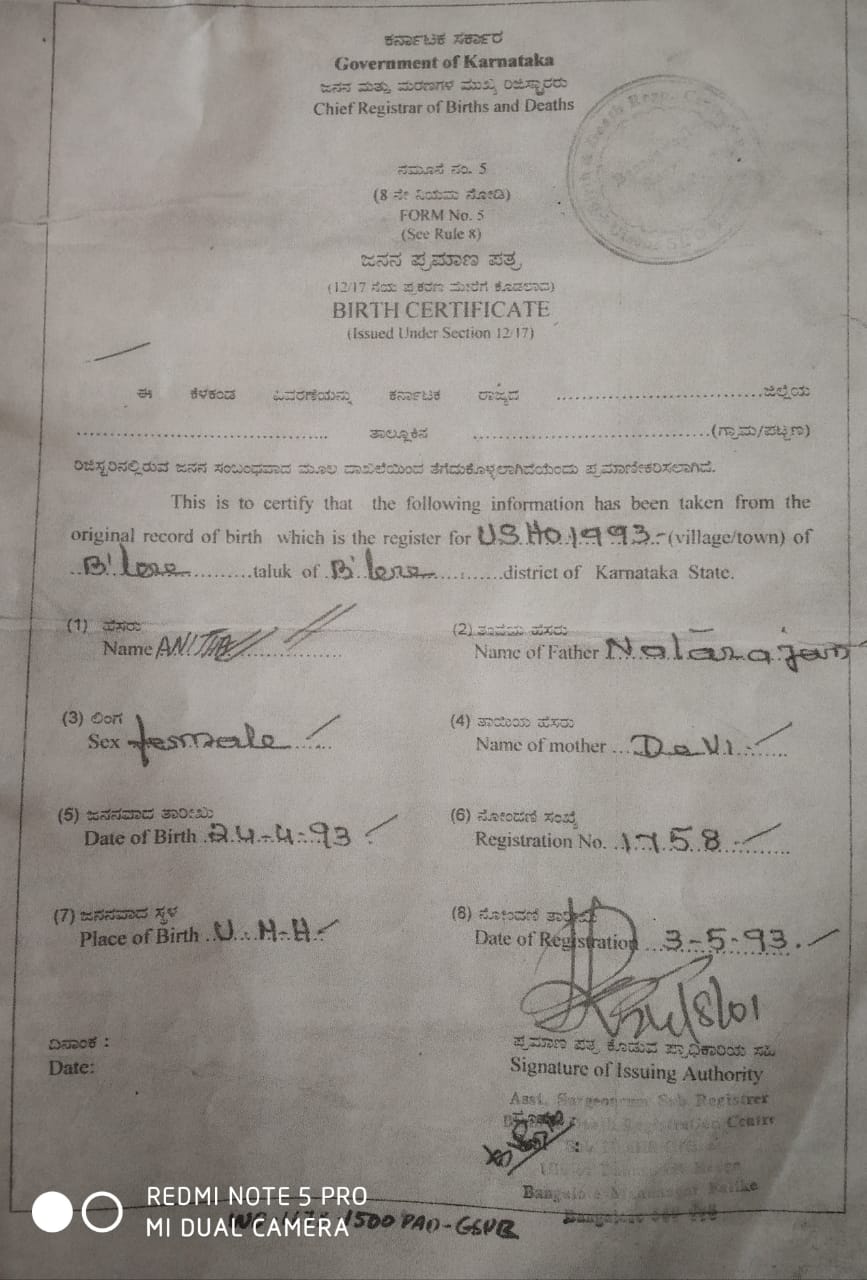 ಕರ್ನಾಟಕ ಸರ್ಕಾರ
Government of Karnataka
ಜನನ ಮತ್ತು ಮರಣಗಳ ಮುಖ್ಯ ರಿಜಿಸ್ಟ್ರಾರರು
Chief Registrar of Births and Deaths
ನಮೂನೆ ನಂ. 5
(8 ನೇ ನಿಯಮ ನೋಡಿ)
FORM No. 5
(See Rule 8)
ಜನನ ಪ್ರಮಾಣ ಪತ್ರ
(12/17 ನೆಯ ಪ್ರಕರಣ ಮೇರೆಗೆ ಕೊಡಲಾದ)
BIRTH CERTIFICATE
(Issued Under Section 12/17)
ಈ ಕೆಳಕಂಡ ವಿವರಣೆಯನ್ನು ಕರ್ನಾಟಕ ರಾಜ್ಯದ ..............................ಜಿಲ್ಲೆಯ
.................................... ತಾಲ್ಲೂಕಿನ ..................................(ಗ್ರಾಮ/ಪಟ್ಟಣ)
ರಿಜಿಸ್ಟರಿನಲ್ಲಿರುವ ಜನನ ಸಂಬಂಧವಾದ ಮೂಲ ದಾಖಲೆಯಿಂದ ತೆಗೆದುಕೊಳ್ಳಲಾಗಿದೆಯೆಂದು ಪ್ರಮಾಣೀಕರಿಸಲಾಗಿದೆ.
This is to certify that the following information has been taken from the
original record of birth which is the register for U.S.H.O.1993.- (village/town) of
B'lore taluk of B'lore district of Karnataka State.
(1) ಹೆಸರು
Name ANITHA
(2) ತಂದೆಯ ಹೆಸರು
Name of Father Natarajan
(3) ಲಿಂಗ
Sex female
(4) ತಾಯಿಯ ಹೆಸರು
Name of mother Devi
(5) ಜನನವಾದ ತಾರೀಖು
Date of Birth 24-4-93
(6) ನೋಂದಣಿ ಸಂಖ್ಯೆ
Registration No. 1758
(7) ಜನನವಾದ ಸ್ಥಳ
Place of Birth U.H.H
(8) ನೋಂದಣಿ ತಾರೀಖು
Date of Registration 3-5-93.
ದಿನಾಂಕ :
Date:
ಪ್ರಮಾಣ ಪತ್ರ ಕೊಡುವ ಪ್ರಾಧಿಕಾರಿಯ ಸಹಿ
Signature of Issuing Authority
Sub Registrer
Registration Centre
REDMI NOTE 5 PRO
MI DUAL CAMERA
1500 PAD-GSPB